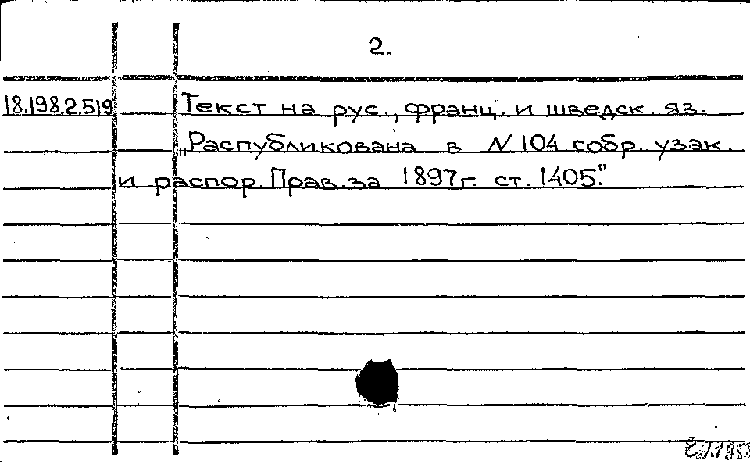 2.
18.198.2.519 Текст на рус., франц. и шведск. яз.
„Распубликована в N 104 собр. узак.
и распор. Прав. за 1897 г. ст. 1405."